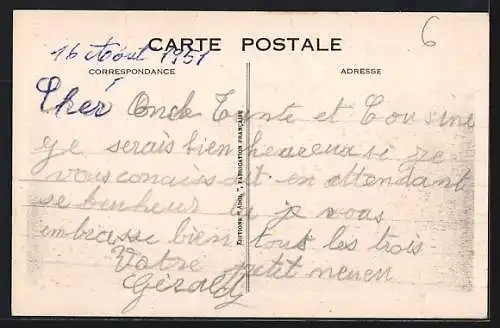 CARTE POSTALE
6
16 Août 1951
CORRESPONDANCE
ADRESSE
Cher Oncle Tante et Cousine
je serais bien heureux si je
vous conaissait en attendant
se bonheur je vous
embrasse bien tous les trois
Votre petit neveu
Gérald
ÉDITIONS "ADIL", FABRICATION FRANÇAISE